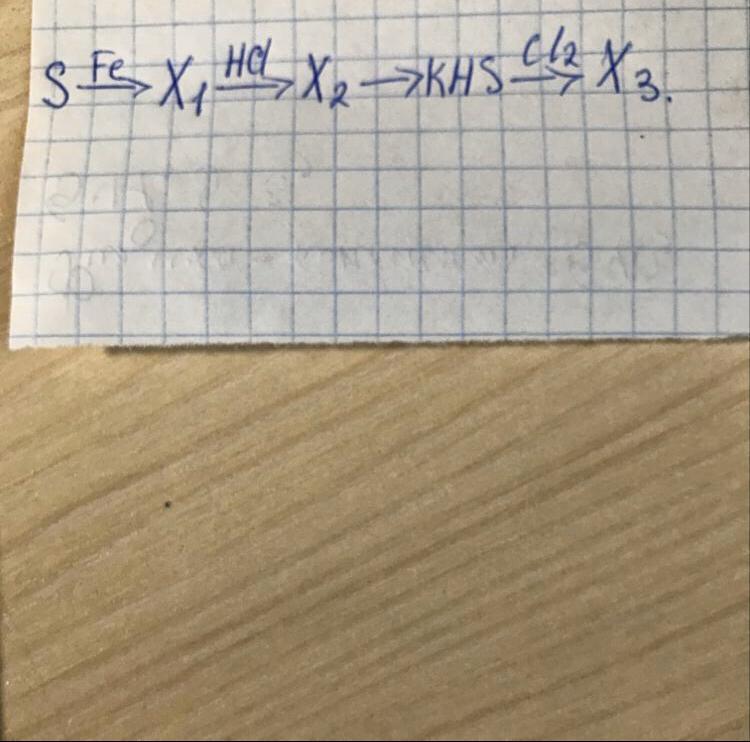 S Fe→ X₁ HCl→ X₂ → KHS Cl₂→ X₃.